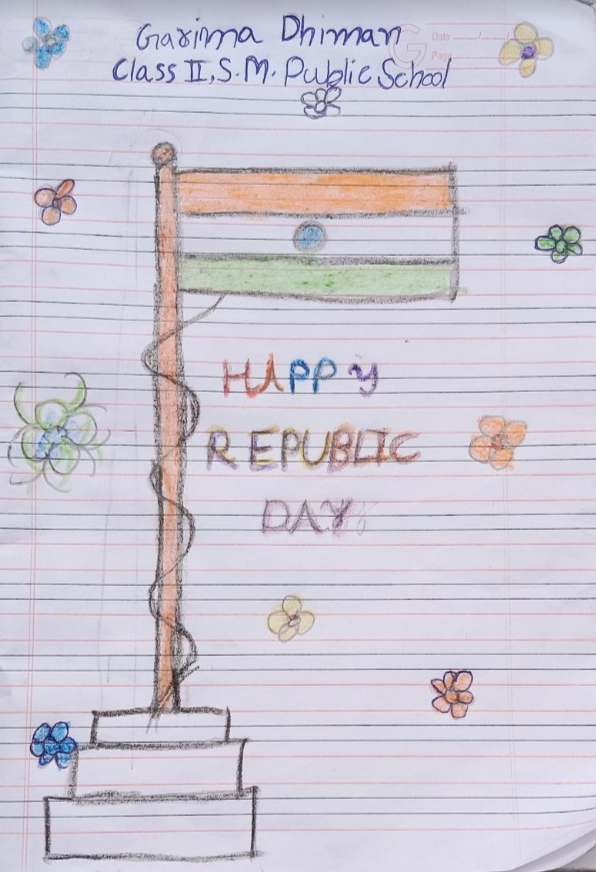 Garima Dhiman
Class II, S.M. Public School
Date
Page
HAPPY
REPUBLIC
DAY